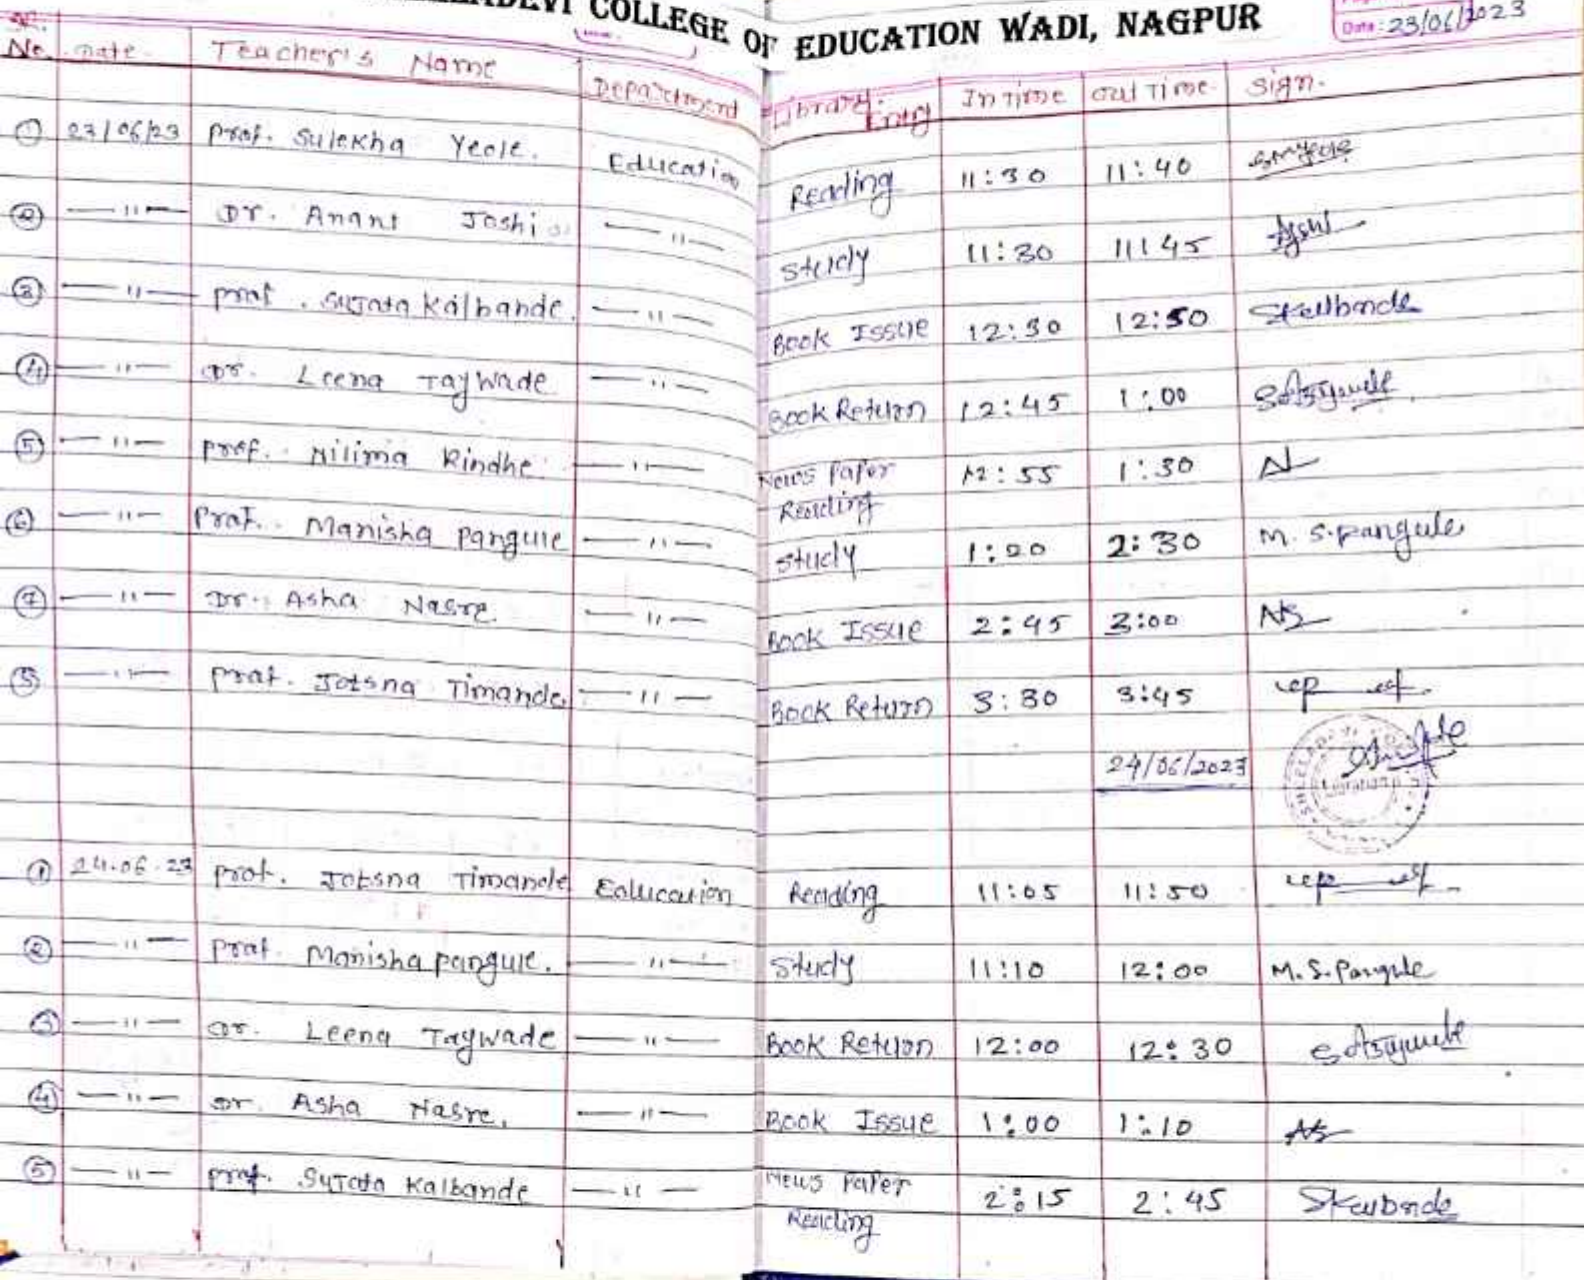 COLLEGE OF EDUCATION WADI, NAGPUR
Date: 23/06/2023
Sr. No. Date Teacher's Name Department Library Entry In Time Out Time Sign.
① 23/06/23 Prof. Sulekha Yeole. Education Reading 11:30 11:40
② —〃— Dr. Anant Joshi —〃— Study 11:30 11:45
③ —〃— Prof. Sujata Kalbande. —〃— Book Issue 12:30 12:50 Skalbande
④ —〃— Dr. Leena Taywade —〃— Book Return 12:45 1:00
⑤ —〃— Prof. Nilima Rindhe —〃— News Paper Reading 12:55 1:30
⑥ —〃— Prof. Manisha Pangule —〃— Study 1:20 2:30 M. S. Pangule
⑦ —〃— Dr. Asha Nasre —〃— Book Issue 2:45 3:00
⑧ —〃— Prof. Jotsna Timande. —〃— Book Return 3:30 3:45
24/06/2023
① 24.06.23 Prof. Jotsna Timande Education Reading 11:05 11:50
② —〃— Prof. Manisha Pangule. —〃— Study 11:10 12:00 M. S. Pangule
③ —〃— Dr. Leena Taywade —〃— Book Return 12:00 12:30
④ —〃— Dr. Asha Nasre. —〃— Book Issue 1:00 1:10
⑤ —〃— Prof. Sujata Kalbande —〃— News Paper Reading 2:15 2:45 Skalbande